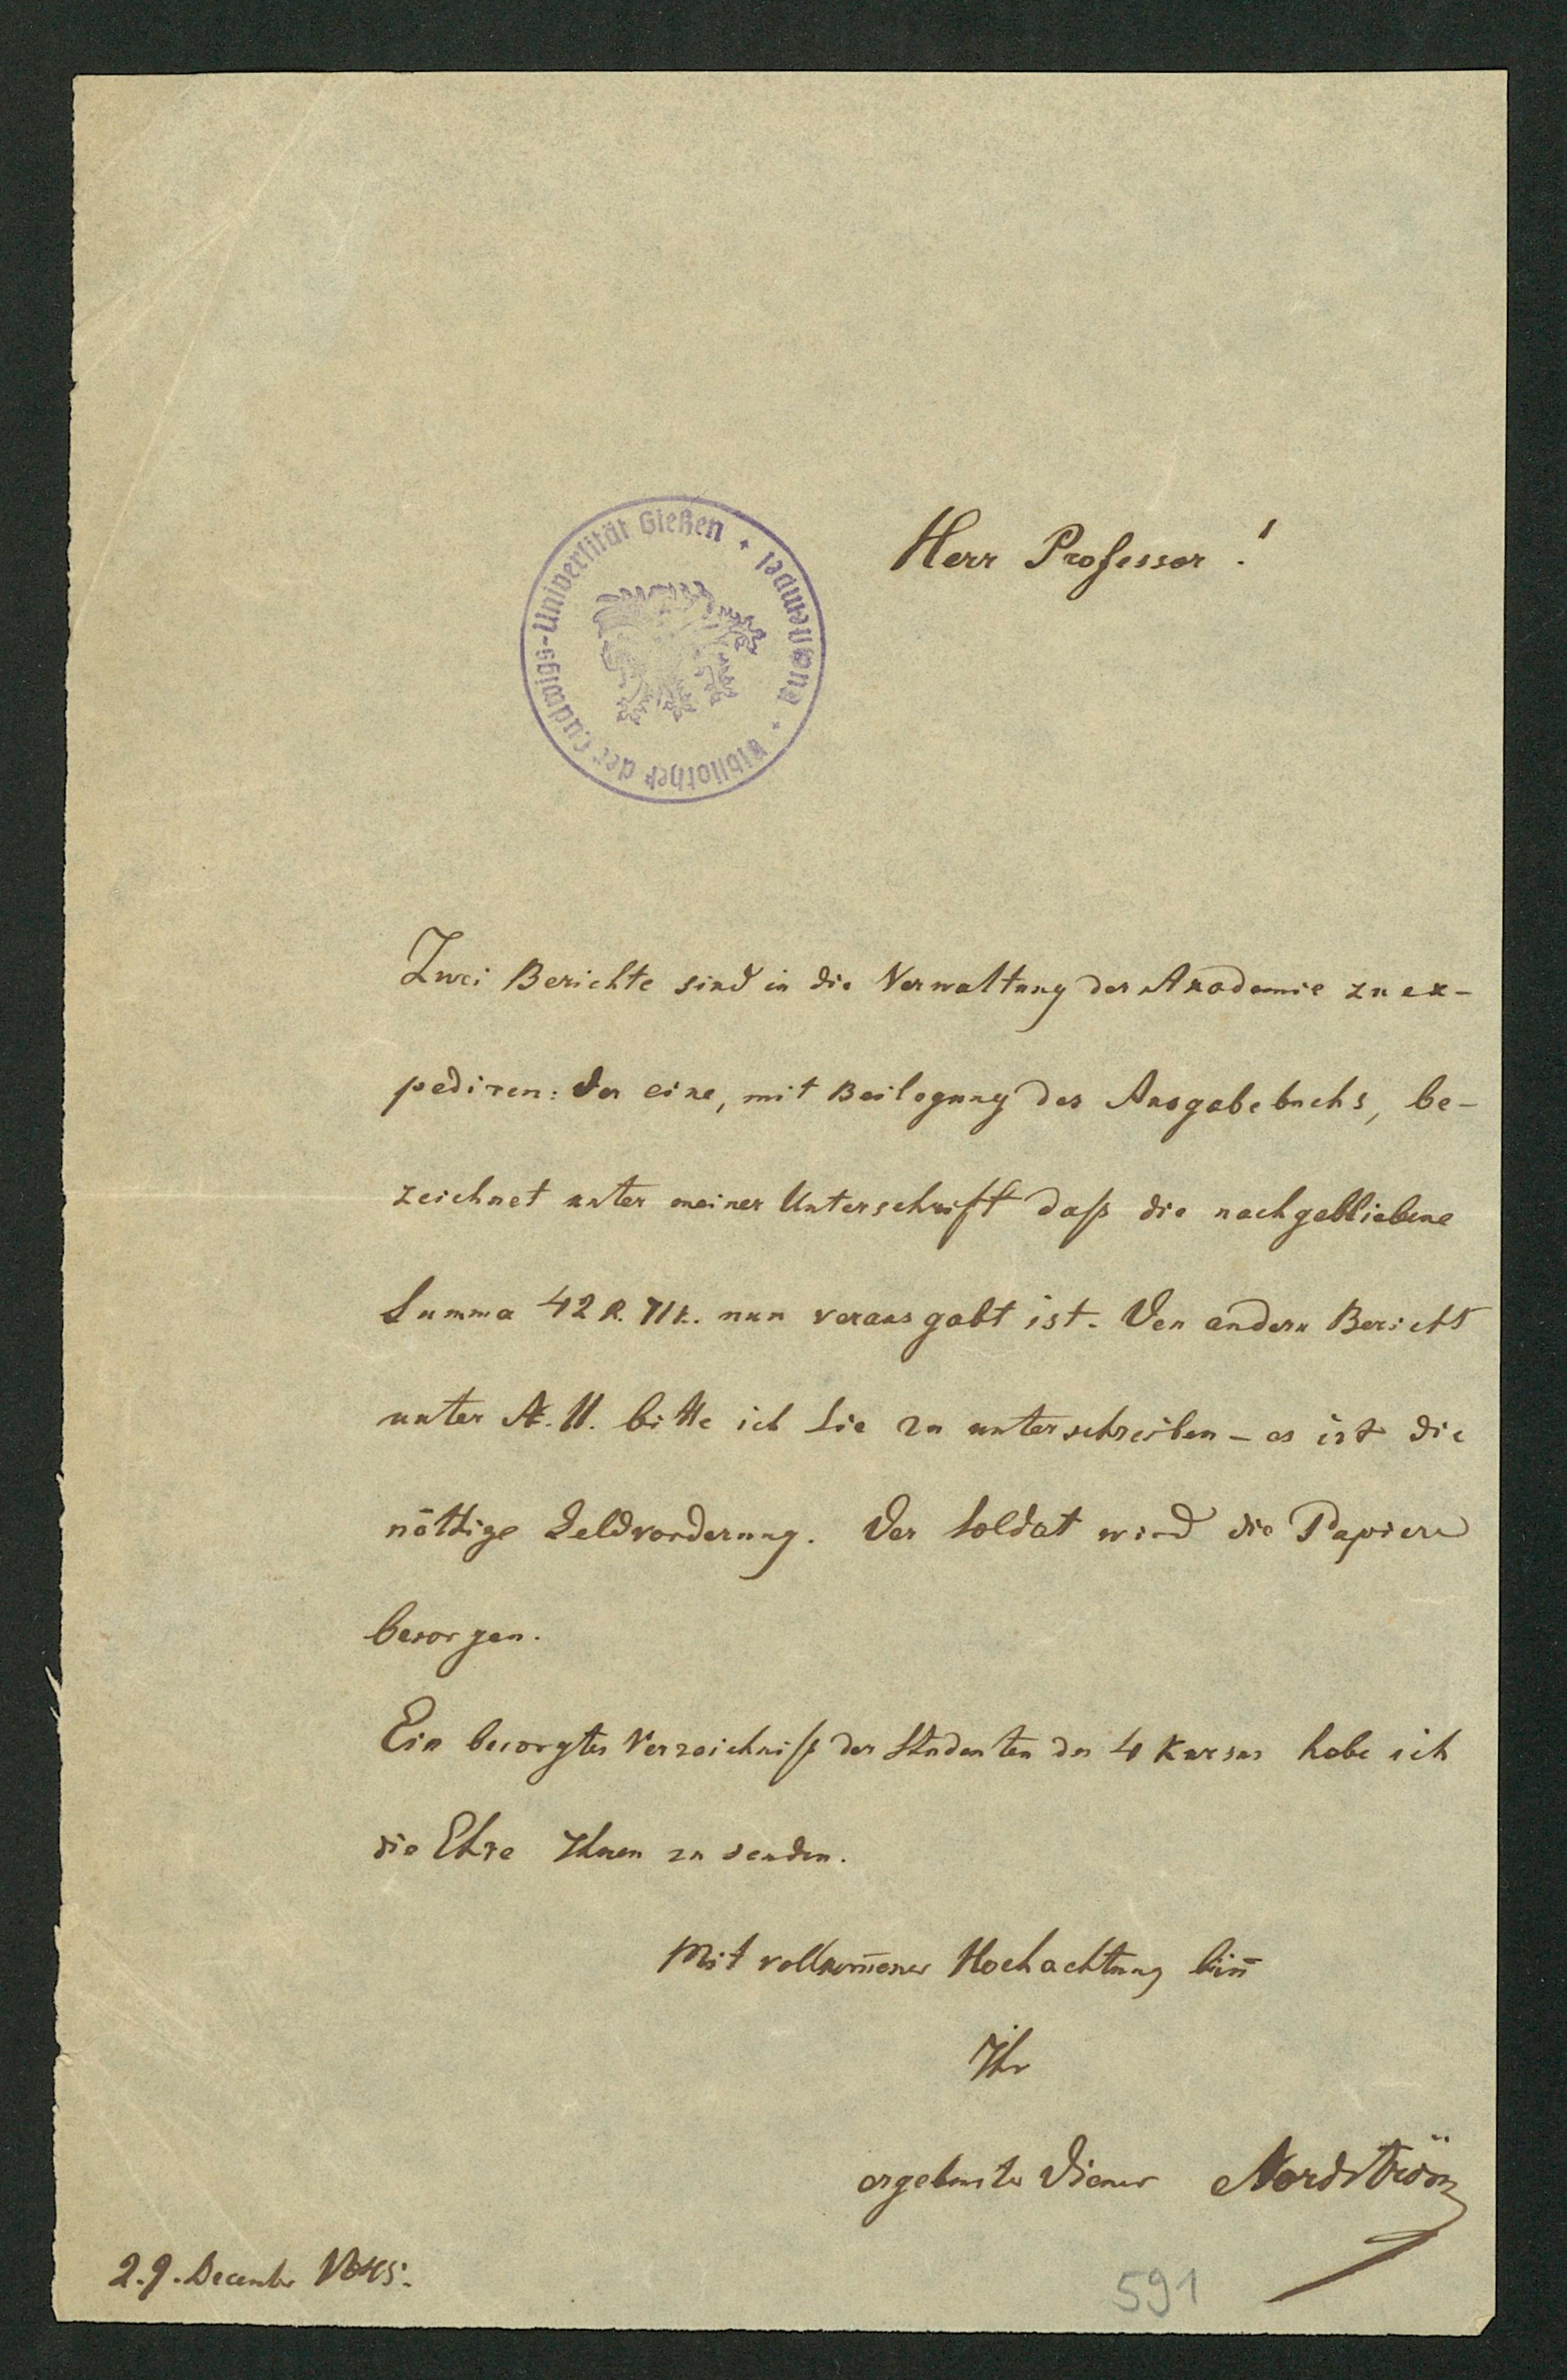 Herr Professor!
Bibliothek der Ludwigs-Universität Gießen + Buchstempel +
Zwei Berichte sind in die Verwaltung der Akademie zu ex-
pediren: der eine, mit Beilegung des Ausgabebuchs, be-
zeichnet unter meiner Unterschrift daß die nachgebliebene
Summa 42 R. 71 k. nun verausgabt ist. Den andern Bericht
unter № 11. bitte ich Sie zu unterschreiben – es ist die
nöthige Geldvorderung. Der Soldat wird die Papiere
besorgen.
Ein besorgtes Verzeichniß der Studenten des 4 Kursus habe ich
die Ehre Ihnen zu senden.
Mit vollkom̄ener Hochachtung bin̄
Ihr
ergebenster Diener Nordström
29. December 1845.
591